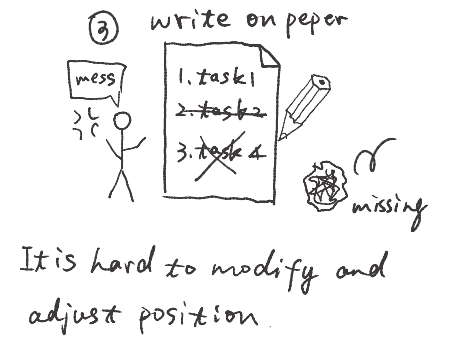 ③ write on peper
mess
1. task1
2. task2
3. task 4
missing
It is hard to modify and
adjust position